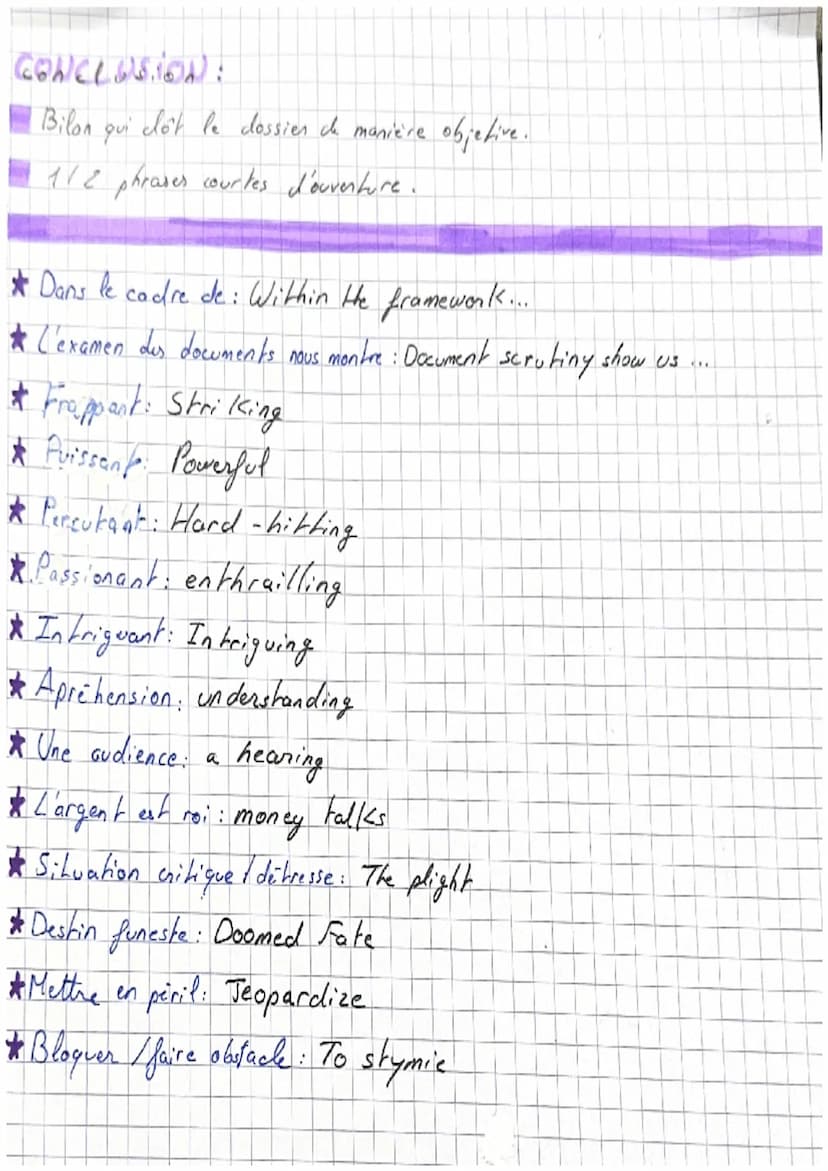 CONCLUSION :
Bilan qui clôt le dossier de manière objetive.
1/2 phrases courtes d'ouverture.
Dans le cadre de : Within the framework...
L'examen des documents nous montre : Document scrutiny show us ...
Frappant : Striking
Puissant : Powerful
Percutant : Hard-hitting
Passionant : enthrailling
Intriguant : Intriguing
Aprēhension : understanding
Une audience : a hearing
L'argent est roi : money talks
Situation critique / détresse : The plight
Destin funeste : Doomed Fate
Mettre en péril : Jeopardize
Bloquer / faire obstacle : To stymie